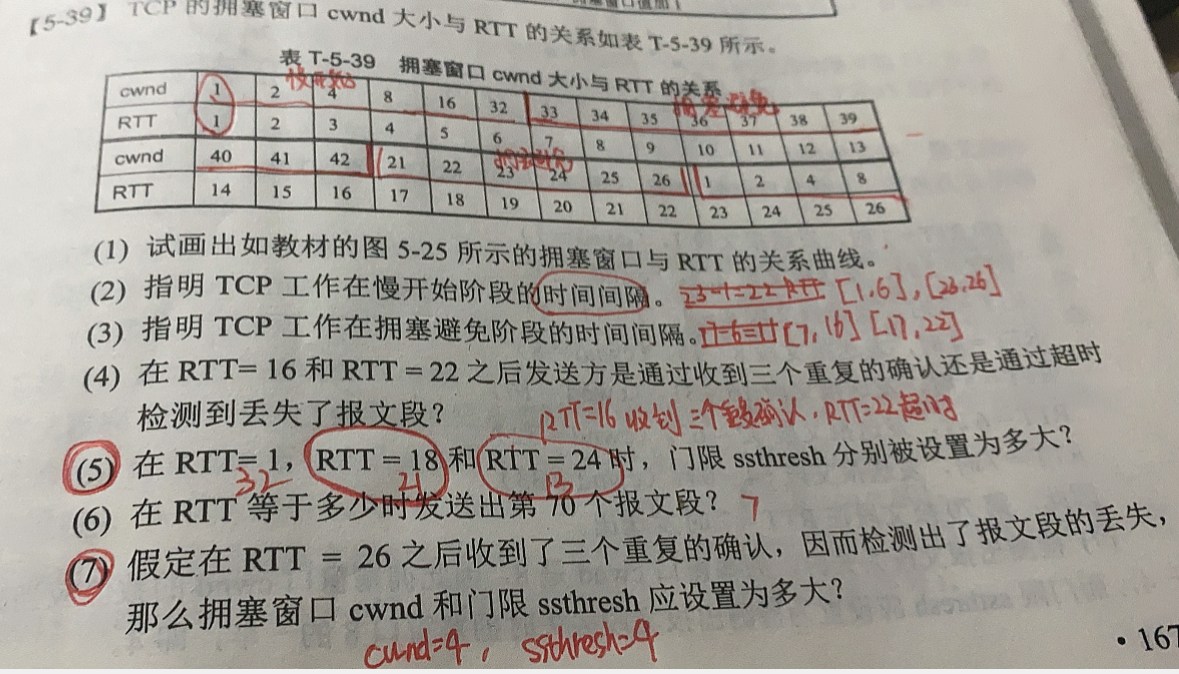 【5-39】 TCP 的拥塞窗口 cwnd 大小与 RTT 的关系如表 T-5-39 所示。
表 T-5-39 拥塞窗口 cwnd 大小与 RTT 的关系
慢开始 拥塞避免
cwnd 1 2 4 8 16 32 33 34 35 36 37 38 39
RTT 1 2 3 4 5 6 7 8 9 10 11 12 13
拥塞避免
cwnd 40 41 42 21 22 23 24 25 26 1 2 4 8
RTT 14 15 16 17 18 19 20 21 22 23 24 25 26
(1) 试画出如教材的图 5-25 所示的拥塞窗口与 RTT 的关系曲线。
(2) 指明 TCP 工作在慢开始阶段的时间间隔。 23-1=22 RTT [1,6],[23,26]
(3) 指明 TCP 工作在拥塞避免阶段的时间间隔。 17-6=11 [7,16] [17,22]
(4) 在 RTT= 16 和 RTT = 22 之后发送方是通过收到三个重复的确认还是通过超时
检测到丢失了报文段? RTT=16 收到三个重复确认, RTT=22超时
(5) 在 RTT= 1, RTT = 18 和 RTT = 24 时, 门限 ssthresh 分别被设置为多大?
32 21 13
(6) 在 RTT 等于多少时发送出第 70 个报文段? 7
(7) 假定在 RTT = 26 之后收到了三个重复的确认, 因而检测出了报文段的丢失,
那么拥塞窗口 cwnd 和门限 ssthresh 应设置为多大?
cwnd=4, ssthresh=4
• 167